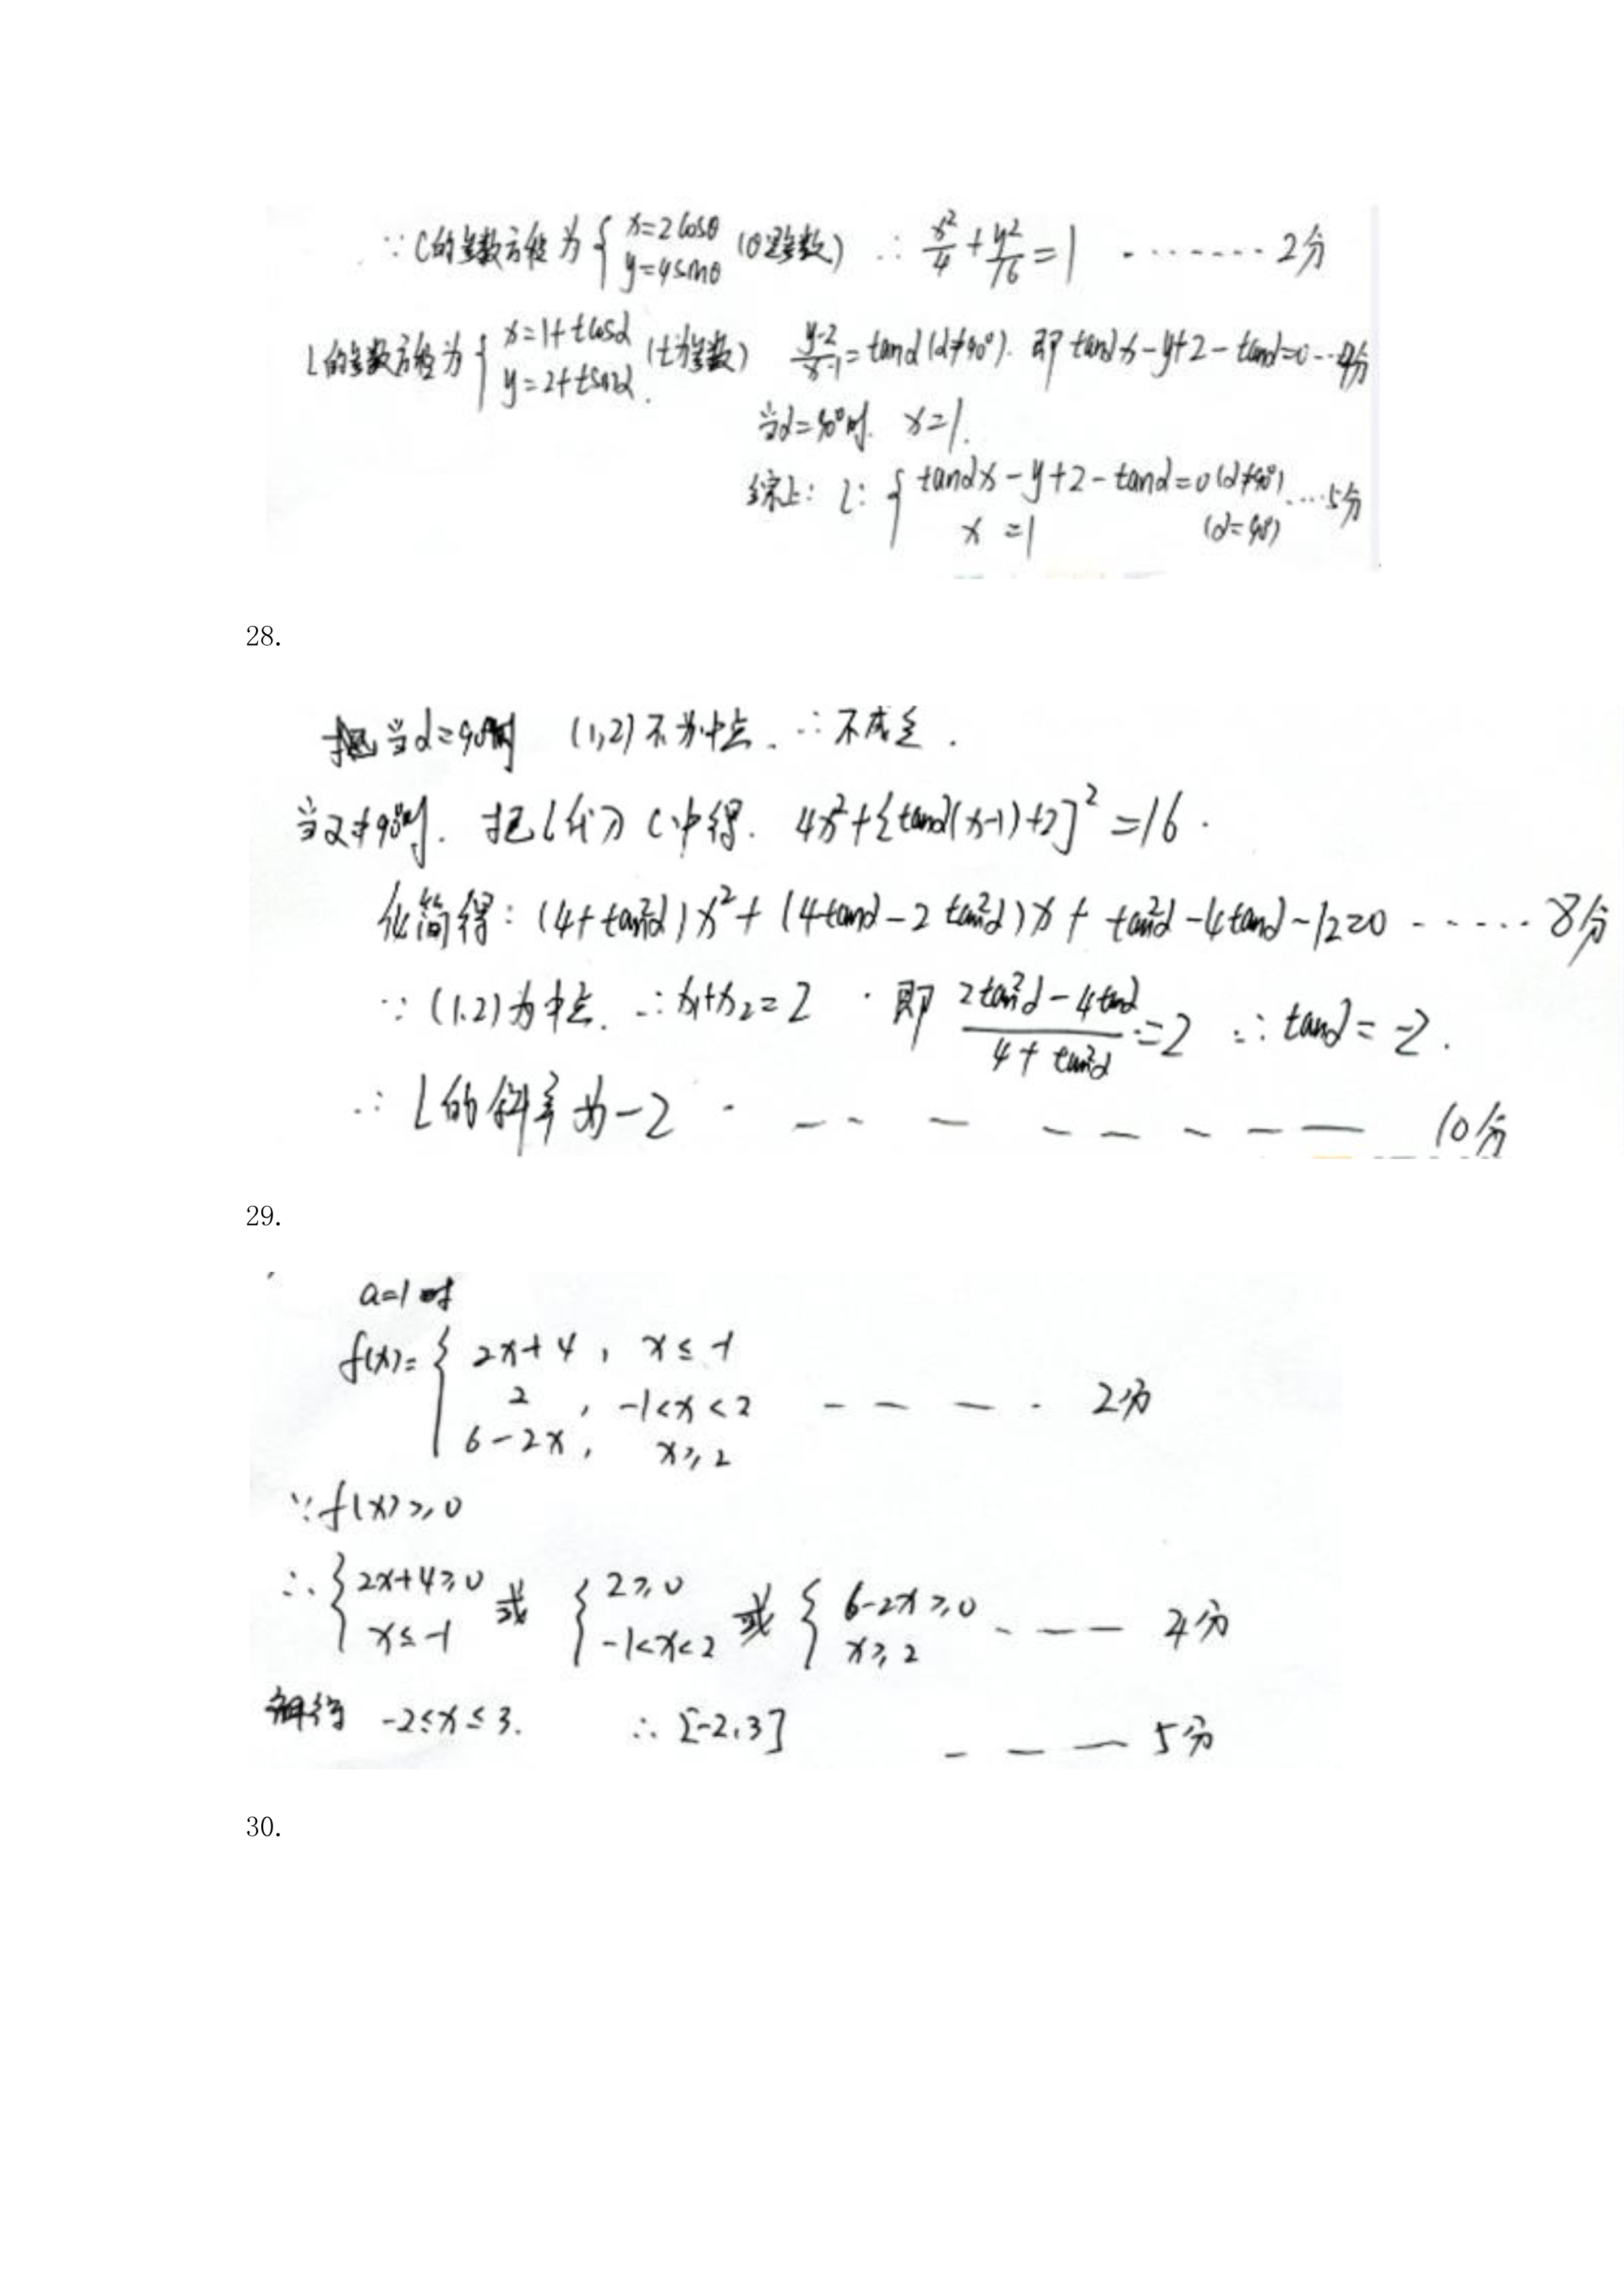 ∵ C的参数方程为 { x=2cosθ (θ是参数) ∴ x²/4 + y²/16 = 1 ········ 2分
y=4sinθ
l的参数方程为 { x=1+tcosα (t为参数) (y-2)/(x-1) = tanα (α≠90°). 即 tanαx-y+2-tanα=0 ··· 4分
y=2+tsinα.
当α=90°时. x=1.
综上: l: { tanαx-y+2-tanα=0 (α≠90°) ····5分
x=1 (α=90°)
28.
当α=90°时 (1,2)不为中点. ∴不成立.
当α≠90°时. 把l代入C中得. 4x²+[tanα(x-1)+2]²=16.
化简得: (4+tan²α)x²+(4tanα-2tan²α)x+tan²α-4tanα-12=0 ······ 8分
∵ (1.2)为中点. ∴x₁+x₂=2 · 即 (2tan²α-4tanα)/(4+tan²α)=2 ∴ tanα=-2.
∴ l的斜率为-2 - — — — — — — — 10分
29.
a=1时
f(x)= { 2x+4, x≤-1
2, -1<x<2 — — — - 2分
6-2x, x≥2
∵f(x)≥0
∴ { 2x+4≥0 或 { 2≥0 或 { 6-2x≥0 - — — 4分
x≤-1 -1<x<2 x≥2
解得 -2≤x≤3. ∴ [-2,3] — — — 5分
30.